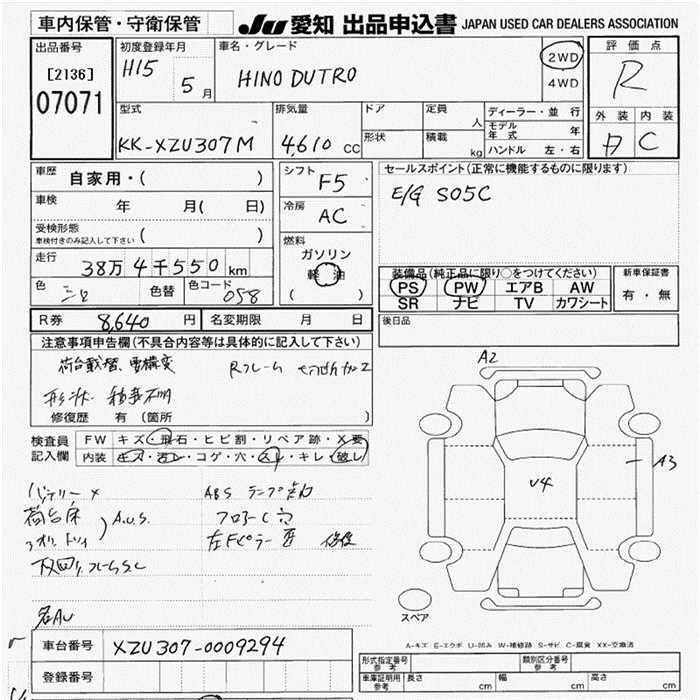 車内保管・守衛保管 JU 愛知 出品申込書 JAPAN USED CAR DEALERS ASSOCIATION
出品番号 初度登録年月 車名・グレード 評価点
[2136] H15 5月 HINO DUTRO 2WD R
07071 4WD
型式 排気量 ドア 定員 人 ディーラー・並行 外装 内装
KK-XZU307M 4,610 cc 形状 積載 kg モデル年式 年 A C
ハンドル 左・右
車歴 自家用・( ) シフト F5 セールスポイント(正常に機能するものに限ります)
車検 年 月( 日) 冷房 AC E/G S05C
受検形態 ( )
車検付きのみ記入して下さい
燃料 ガソリン
走行 38万4千550km 軽油 装備品(純正品に限り○をつけてください) 新車保証書
色 色替 色コード 058 ( ) PS PW エアB AW 有・無
SR ナビ TV カワシート
R券 8,640円 名変期限 月 日 後日品
注意事項申告欄(不具合内容等は具体的に記入して下さい)
Rフレーム
形状・
修復歴 有(箇所 )
検査員 FW キズ・飛石・ヒビ割・リペア跡・X要
記入欄 内装 キズ・汚レ・コゲ・穴・スレ・キレ・破レ
A2
A3
V4
バッテリー× ABS ランプ点灯
荷台床 A.U.S. フロアーC穴
左Fピラー
スペア
A-キズ E-エクボ U-凹み W-補修跡 S-サビ C-腐食 XX-交換済
車台番号 XZU307-0009294
登録番号
形式指定番号 参考 類別区分番号 参考
車庫証明用 参考 長さ cm 幅 cm 高さ cm